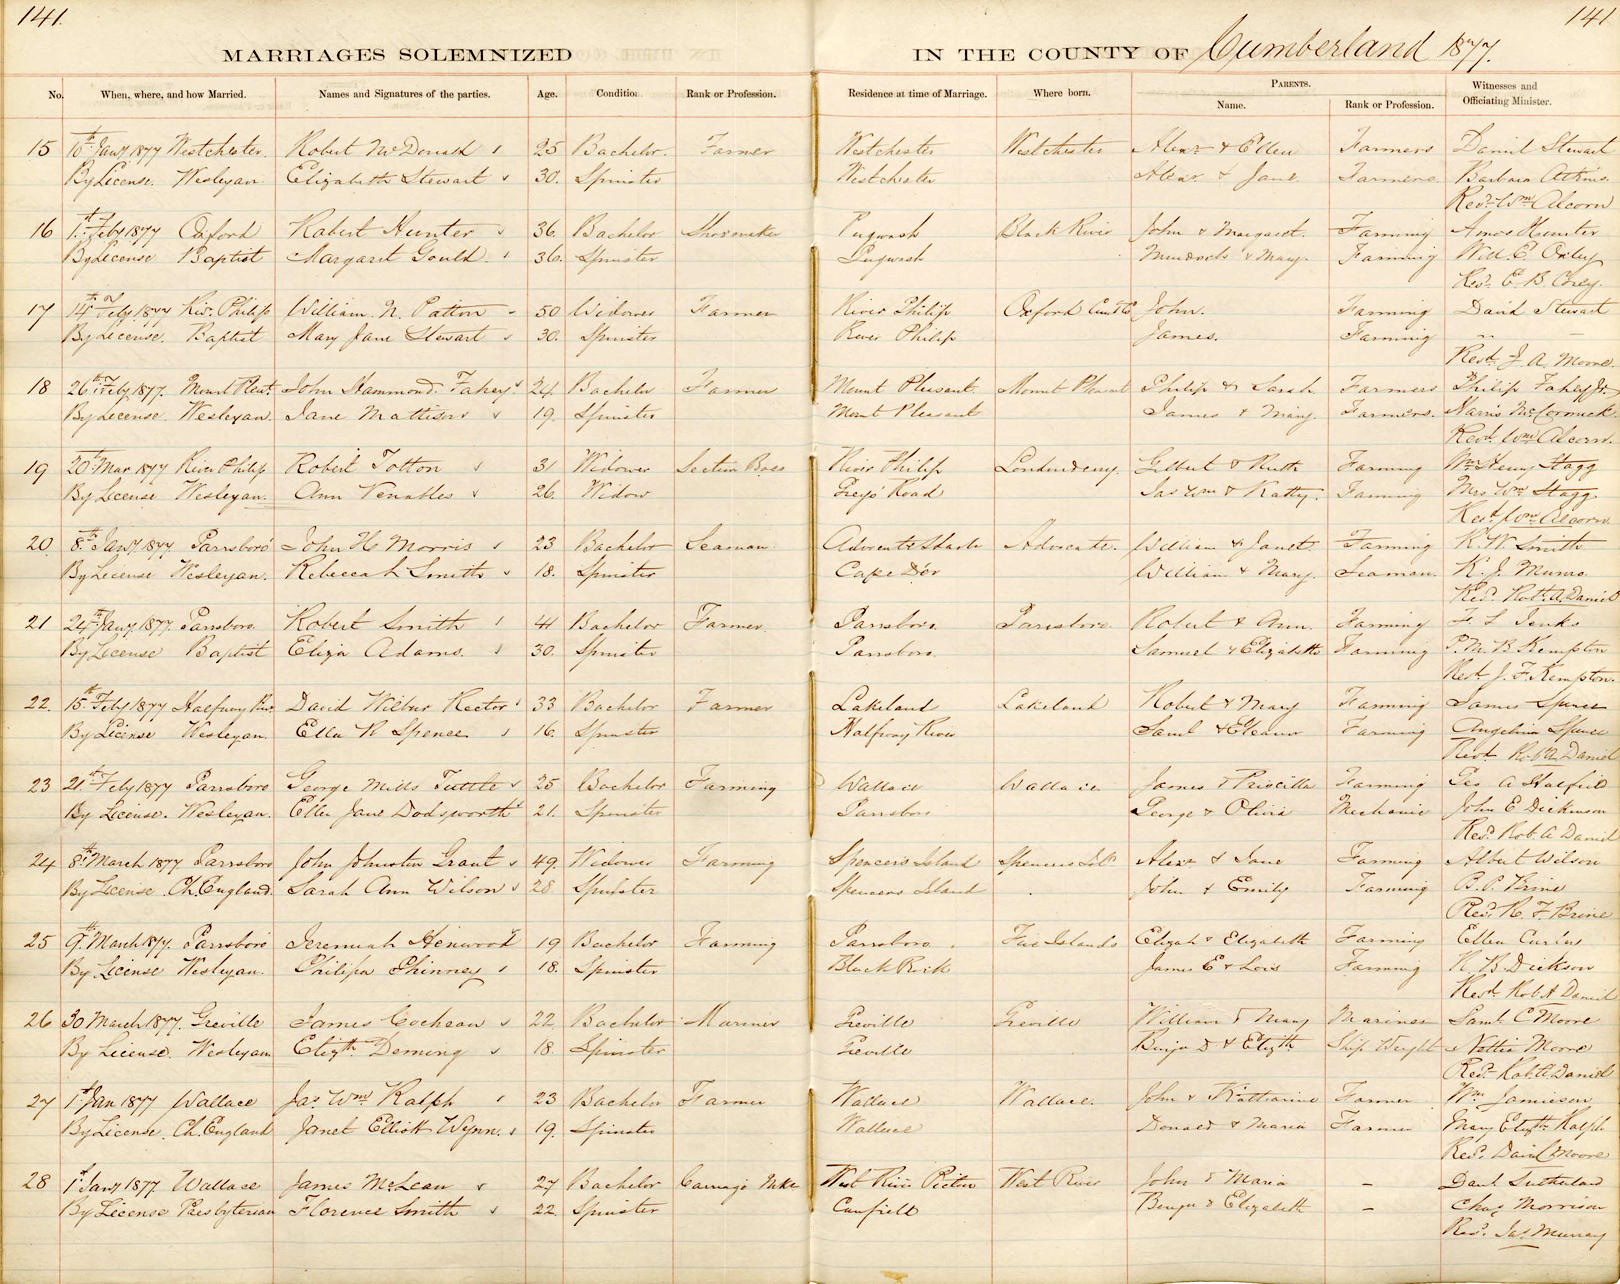 141. 141
MARRIAGES SOLEMNIZED IN THE COUNTY OF Cumberland 1877.
No. When, where, and how Married. Names and Signatures of the parties. Age. Condition Rank or Profession. Residence at time of Marriage. Where born. PARENTS. Name. Rank or Profession. Witnesses and Officiating Minister.
15 10th Jany 1877 Westchester. Robert McDonald 25 Bachelor. Farmer Westchester Westchester Alexr & Ellen Farmers Daniel Stewart
By License. Wesleyan Elizabeth Stewart 30. Spinster Westchester Alexr & Jane Farmers. Barbara Atkins.
Revd Wm Alcorn
16 1st Feby 1877 Oxford Robert Hunter 36. Bachelor Shoemaker Pugwash Black River John & Margaret. Farming Amos Hunter
By License Baptist Margaret Gould. 36. Spinster Pugwash Murdoch & Mary. Farming Will. E. Oxley
Revd. E. B. Corey.
17 14th Feby 1877 Rivr. Philip William. N. Patton 50 Widower Farmer River Philip Oxford John. Farming David Stewart
By License. Baptist Mary Jane Stewart 30. Spinster River Philip James. Farming " —
Revd. J. A. Moore.
18 26th Feby 1877. Mount Pleast. John Hammond Fahey 24. Bachelor Farmer Mount Pleasant Mount Pleasant Philip & Sarah Farmers Philip Fahey Jr.
By License Wesleyan. Jane Mattison 19. Spinster Mount Pleasant James & Mary. Farmers. Harris McCormick.
Revd. Wm Alcorn.
19 20th Mar 1877 River Philip Robert Totton 31 Widower Section Boss River Philip Londonderry. Gilbert & Ruth Farming Wm Henry Stagg
By License Wesleyan. Ann Venables 26. Widow Greys Road Jas Wm & Katty. Farming Mrs Wm Stagg
Revd Wm Alcorn
20. 8th Jany. 1877 Parrsboro' John H. Morris 23 Bachelor Seaman Advocate Advocate. William & Janet. Farming R. W. Smith
By License Wesleyan. Rebeccah Smith 18. Spinster Cape D'or William & Mary. Seaman. K. J. Munro.
Revd. Robt. A. Daniel
21 24th Jany. 1877. Parrsboro. Robert Smith 41 Bachelor Farmer. Parrsboro. Parrsboro Robert & Ann. Farming F. L. Jenks
By License Baptist Eliza Adams. 30. Spinster Parrsboro. Samuel & Elizabeth Farming P. M. B. Kempton
Revd. J. F. Kempton.
22. 15th Feby 1877 Halfway Riv. David Wilbur Rector 33 Bachelor Farmer Lakeland Lakeland Robert & Mary Farming James Spence
By License Wesleyan. Ella R Spence 16. Spinster Halfway River Saml & Eleanor Farming Angelina Spence
Revd Rob A. Daniel
23 21st Feby 1877 Parrsboro George Mills Tuttle 25 Bachelor Farming Wallace Wallace James & Priscilla Farming Geo A Hatfield
By License. Wesleyan. Ellen Jane Dodsworth 21. Spinster Parrsboro George & Olivia Mechanic John E Dickinson
Revd. Rob. A Daniel
24 8th March 1877 Parrsboro John Johnston Grant 49. Widower Farming Spencer's Island Spencers Isld. Alexr & Jane Farming Albert Wilson
By License. Ch. England. Sarah Ann Wilson 28 Spinster Spencers Island John & Emily Farming B. P. Brine
Revd. R. F. Brine
25 9th March 1877. Parrsboro' Jeremiah Henwood 19 Bachelor Farming Parrsboro. Five Islands Elijah & Elizabeth Farming Ellen
By License Wesleyan. Philipa Phinney 18. Spinster Black Rock James E & Lois Farming N. B. Dickson
Revd. Rob A Daniel
26 30 March 1877. Greville James Cochran 22. Bachelor Mariner Greville Greville William & Mary Mariner Saml. C Moore
By License. Wesleyan Elizth Deming 18. Spinster Greville Benjn D & Elizth Ship Wright Nettie Moore
Revd. Rob. A. Daniel
27 1st Jan 1877 Wallace Jas. Wm Ralph 23 Bachelor Farmer Wallace Wallace. John & Katharine Farmer Wm Jamieson
By License. Ch. England Janet Elliott Wynn. 19. Spinster Wallace Donald & Maria Farmer Mary Elizth Ralph
Revd. Davd. C Moore
28 1st Jany 1877 Wallace James McLean 27 Bachelor Carriage Maker West River Pictou West River John & Maria – Danl Sutherland
By License Presbyterian Florence Smith 22. Spinster Canfield Benjn & Elizabeth – Chas Morrison
Revd. Jas. Murray